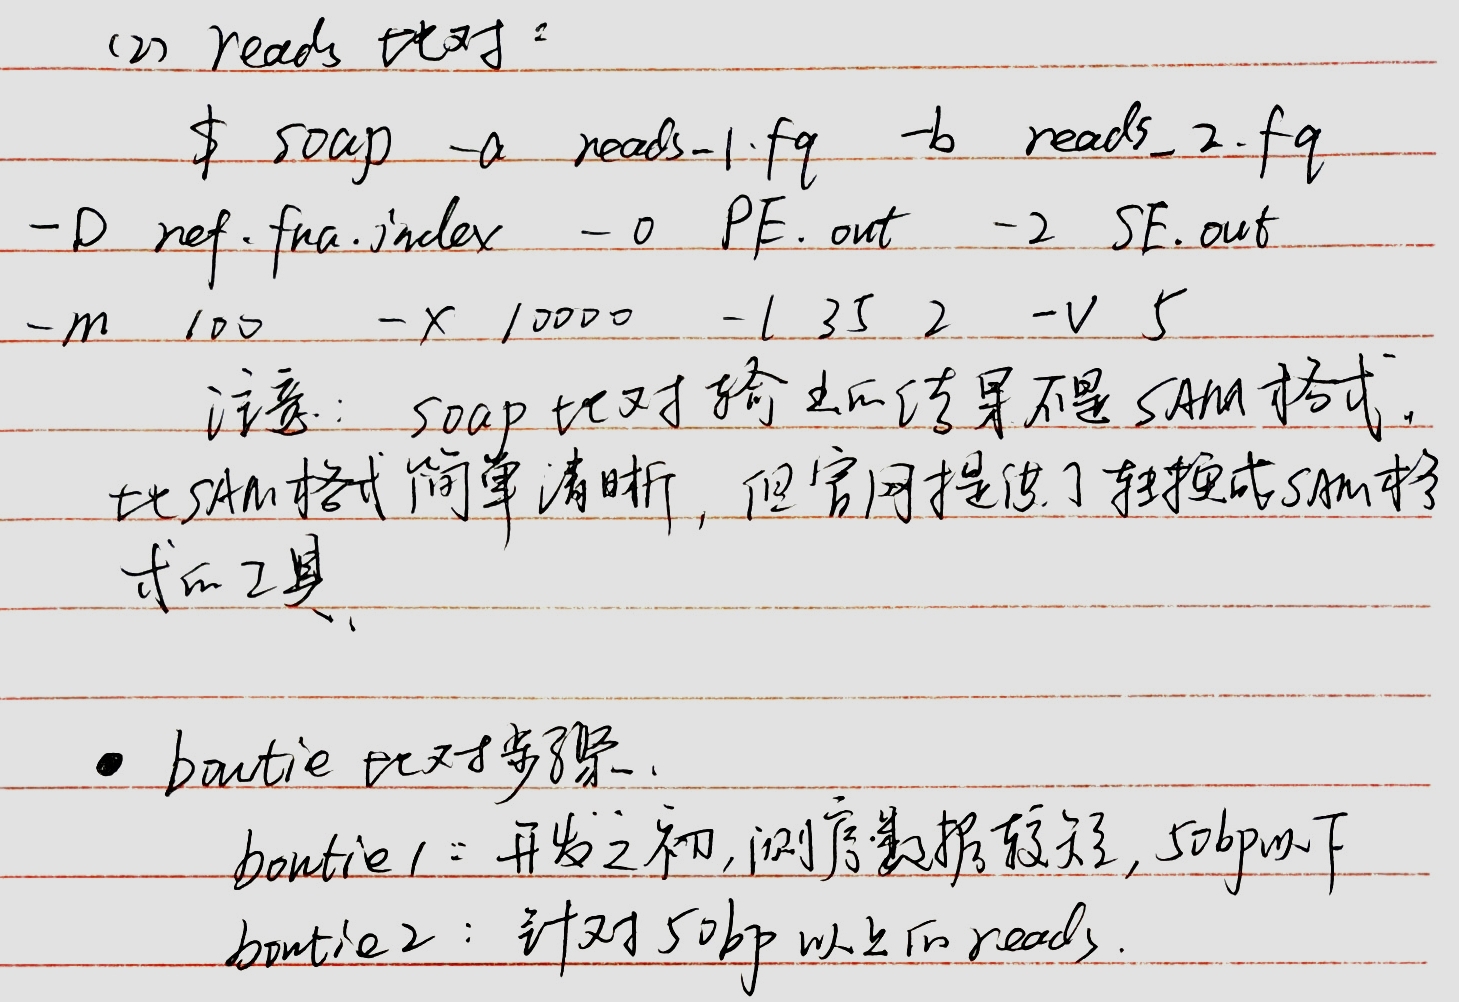 (2) reads 比对：
$ soap -a reads-1.fq -b reads_2.fq
-D ref.fna.index -o PE.out -2 SE.out
-m 100 -x 10000 -l 35 2 -v 5
注意： soap 比对输出的结果不是SAM格式，
比SAM格式简单清晰，但官网提供了转换成SAM格
式的工具、
• bowtie 比对步骤.
bowtie1：开发之初，测序数据较短，50bp以下
bowtie2：针对50bp以上的reads.